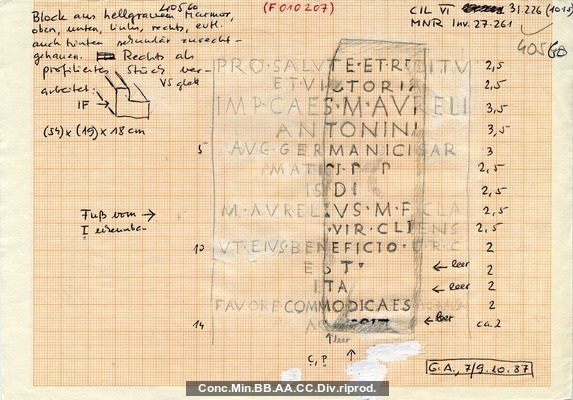 405 60
(F 010 207)
CIL VI 31.226 (1015)
MNR Inv. 27-261
40560
Block aus hellgrauem Marmor,
oben, unten, links, rechts, evtl.
auch hinten sekundär zurecht-
gehauen. Rechts als
profiliertes Stück ver-
arbeitet. VS glatt
IF →
(54) x (19) x 18 cm
PRO·SALVTE·ET·REDITV 2,5
ET VICTORIA 2,5
IMP·CAES·M·AVRELI 3,5
ANTONINI 3,5
5 AVG·GERMANICI SAR 3
MATICI·P·P 2,5
IS DI 2,5
M·AVRELIVS·M·F·CLA 2,5
Fuß vom →
I erkennbar
VIR·CLIENS 2,5
10 VT·EIVS·BENEFICIO·C·R·C 2
EST ← leer 2
ITA ← leer 2
FAVORE COMMODI CAES 2
14 ← leer ca. 2
↑ leer
C, P ↑
G.A., 7/9.10.87
Conc.Min.BB.AA.CC.Div.riprod.